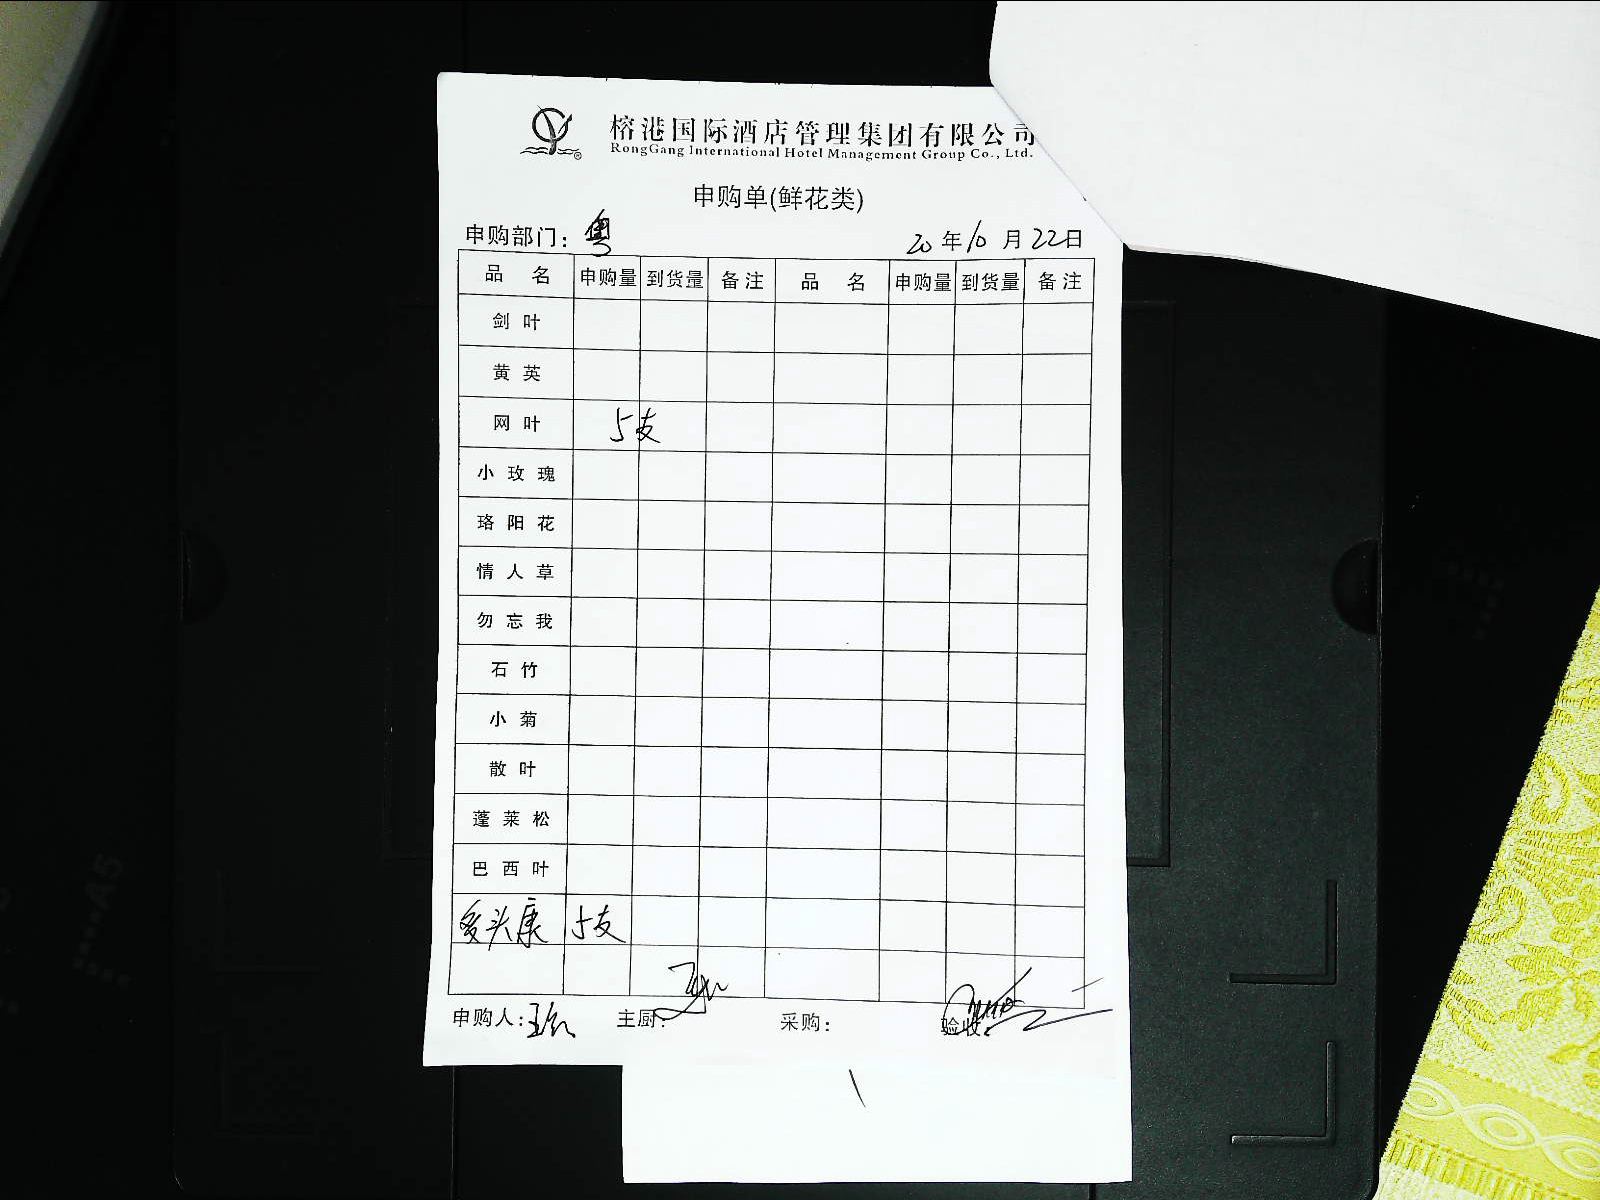 榕港国际酒店管理集团有限公司
RongGang International Hotel Management Group Co., Ltd.
申购单(鲜花类)
申购部门：粤 20年10月22日
品名 申购量 到货量 备注 品名 申购量 到货量 备注
剑叶
黄英
网叶 5支
小玫瑰
珞阳花
情人草
勿忘我
石竹
小菊
散叶
蓬莱松
巴西叶
多头康 5支
申购人： 主厨： 采购： 验收：
A5